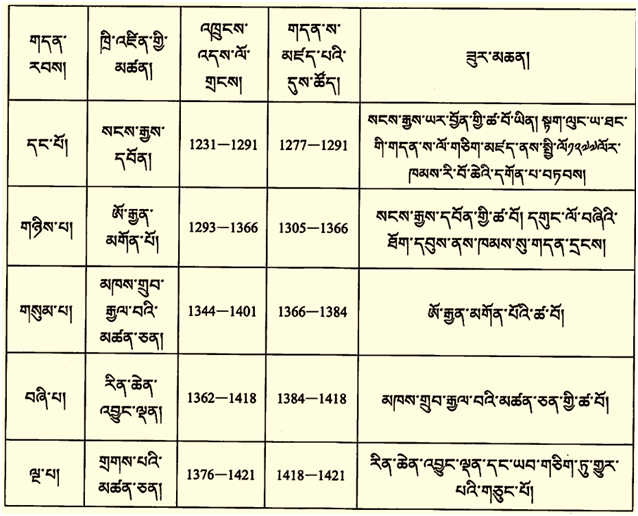 གདན་རབས། ཁྲི་འཛིན་གྱི་མཚན། འཁྲུངས་འདས་ལོ་གྲངས། གདན་ས་མཛད་པའི་དུས་ཚོད། ཟུར་མཆན།
དང་པོ། སངས་རྒྱས་དབོན། 1231—1291 1277—1291 སངས་རྒྱས་ཡར་བྱོན་གྱི་ཚ་བོ་ཡིན། སྟག་ལུང་ཡ་ཐང་
གི་གདན་ས་ལོ་གཅིག་མཛད་ནས་སྤྱི་ལོ༡༢༧༧ལོར་
ཁམས་རི་བོ་ཆེའི་དགོན་པ་བཏབས།
གཉིས་པ། ཨོ་རྒྱན་མགོན་པོ། 1293—1366 1305—1366 སངས་རྒྱས་དབོན་གྱི་ཚ་བོ། དགུང་ལོ་བཞིའི་
ཐོག་དབུས་ནས་ཁམས་སུ་གདན་དྲངས།
གསུམ་པ། མཁས་གྲུབ་རྒྱལ་བའི་མཚན་ཅན། 1344—1401 1366—1384 ཨོ་རྒྱན་མགོན་པོའི་ཚ་བོ།
བཞི་པ། རིན་ཆེན་འབྱུང་ལྡན། 1362—1418 1384—1418 མཁས་གྲུབ་རྒྱལ་བའི་མཚན་ཅན་གྱི་ཚ་བོ།
ལྔ་པ། གྲགས་པའི་མཚན་ཅན། 1376—1421 1418—1421 རིན་ཆེན་འབྱུང་ལྡན་དང་ཡབ་གཅིག་ཏུ་གྱུར་
པའི་གཅུང་པོ།